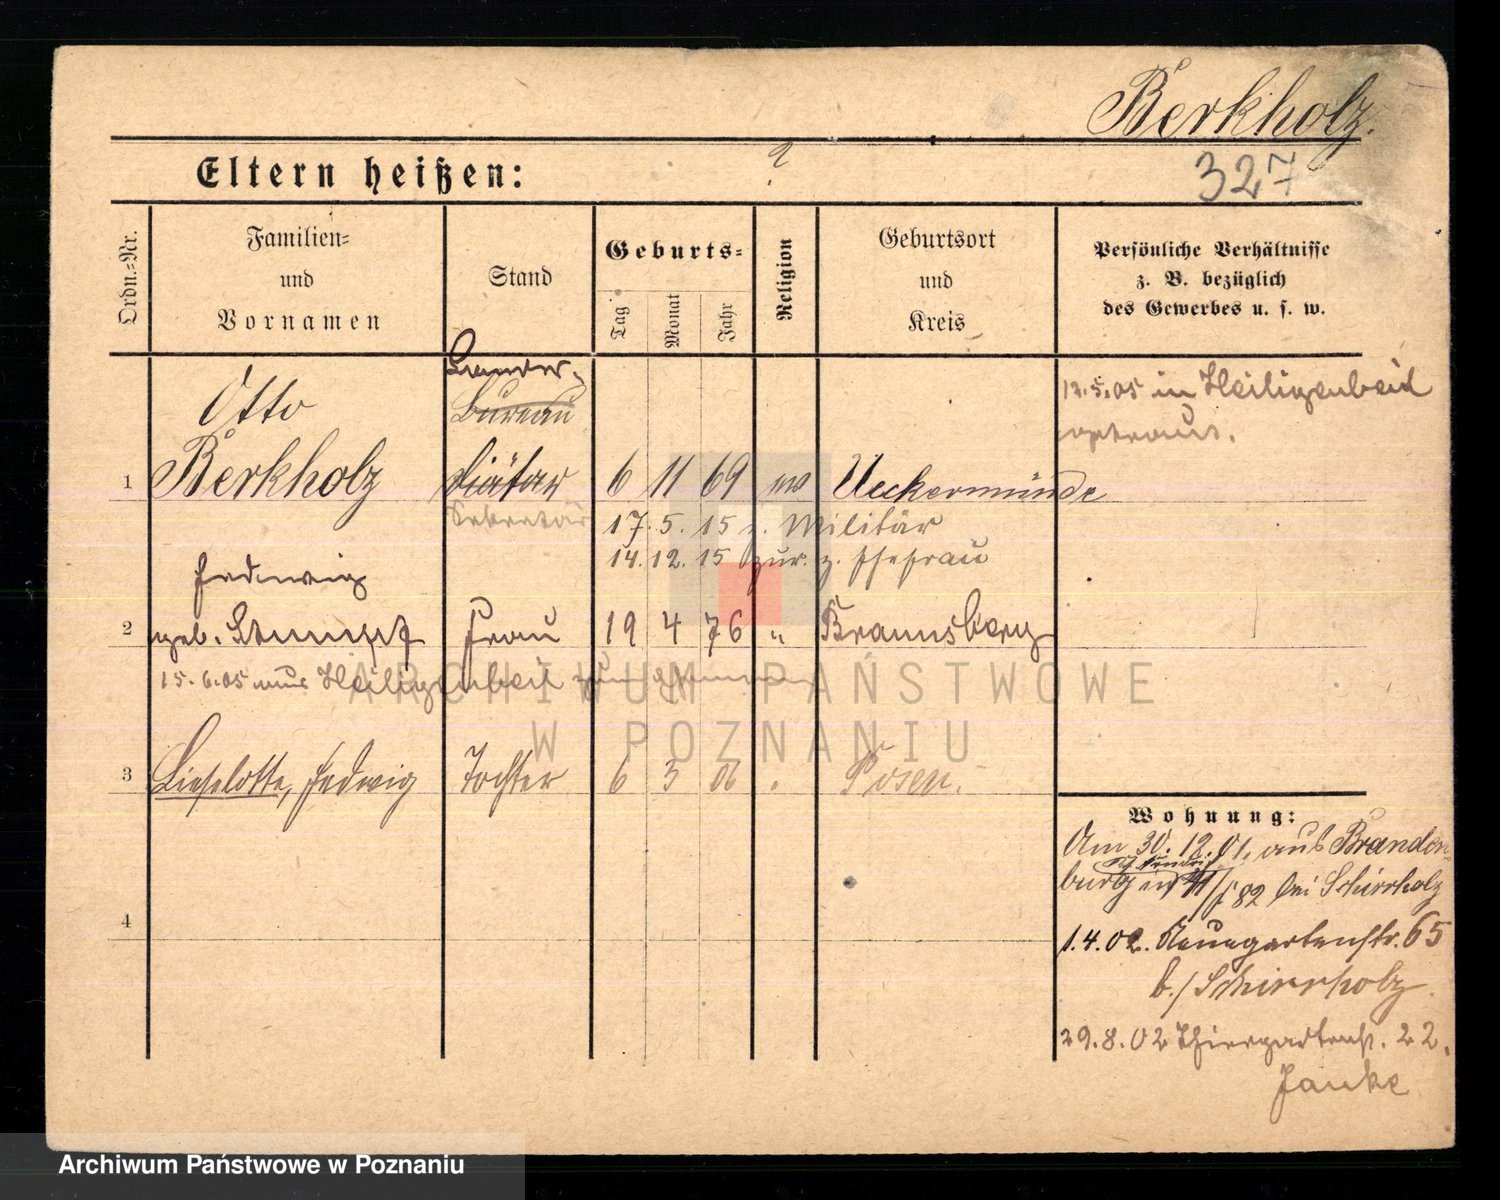 Berkholz.
327
Eltern heißen: ?
Ordn.-Nr.
Familien-
und
Vornamen
Stand
Geburts-
Tag
Monat
Jahr
Religion
Geburtsort
und
Kreis
Persönliche Verhältnisse
z. B. bezüglich
des Gewerbes u. s. w.
Otto
Bureau
12.5.05 in Heiligenbeil
getraut.
1 Berkholz diätar 6 11 69 ev Ueckermünde
Sekretär 17. 5. 15 z. Militär
14. 12. 15 zur. z. Ehefrau
Hedwig
2 geb. Stumpf Frau 19 4 76 " Braunsberg
15.6.05 aus Heiligenbeil
3 Lieselotte, Hedwig Tochter 6 3 06 " Posen.
Wohnung:
Am 30.12.01. aus Branden-
burg in bei Schirrholz
4
1.4.02. Neuegartenstr. 65
b./Schirrholz.
29.8.02 Thiergartenstr. 22.
Janke
ARCHIWUM PAŃSTWOWE
W POZNANIU
Archiwum Państwowe w Poznaniu